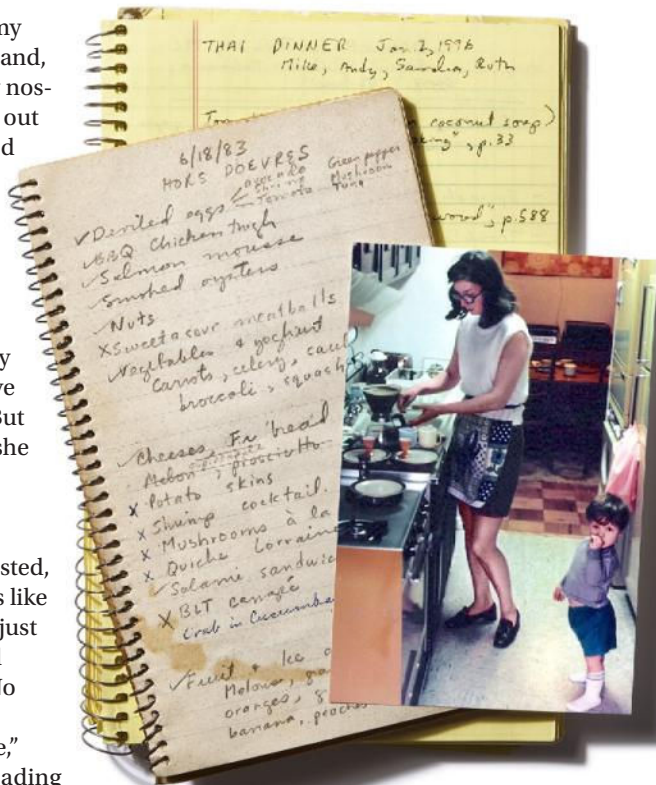 my
and,
nos-
out
d
y
ve
But
she
sted,
s like
just
d
No
e,”
ading
THAI DINNER Jan. 2, 1996
Mike, Andy, Sandra, Ruth
coconut soup)
p. 33
p. 588
6/18/83
HORS DOEVRES
✓Deviled eggs avocado Green pepper
Shrimp Mushroom
Tomato Tuna
✓BBQ Chicken thigh
✓Salmon mousse
✓Smoked oysters
✓Nuts
X Sweet & sour meatballs
✓Vegetables & yoghurt
Carrots, celery, caul
broccoli, squash
✓Cheeses, Fr. bread
Melon, prosciutto
X Potato skins
X Shrimp cocktail
X Mushrooms à la
X Quiche Lorraine
✓Salami sandwic
X BLT canapé
Crab in Cucumbe
✓Fruit + Ice
Melons,
oranges, g
banana, peaches